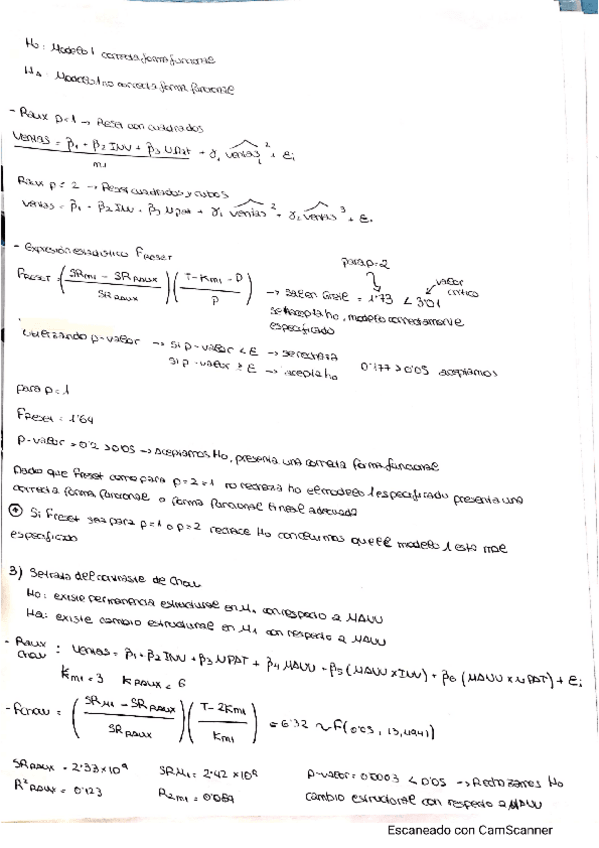 H0: Modelo 1 correcta forma funcional
HA: Modelo 1 no correcta forma funcional
- Raux p=1 → Reset con cuadrados
Ventas = β̂1 + β̂2 INV + β̂3 NPat + γ1 ventas^2 + εi
m1
Raux p=2 → Reset cuadrados y cubos
ventas = β̂1 + β̂2 INV + β̂3 Npat + γ1 ventas^2 + γ2 ventas^3 + εi
- Expresión estadístico FRESET
para p=2
valor crítico
FRESET = (SRM1 - SRRaux / SRRaux) (T - KM1 - P / P) → = 1'73 < 3'01
se acepta ho, modelo correctamente
especificado
Utilizando p-valor → si p-valor < ε → se rechaza
si p-valor ≥ ε → acepta ho 0'177 > 0'05 aceptamos
para p=1
FReset = 1'64
p-valor = 0'2 > 0'05 → aceptamos Ho, presenta una correcta forma funcional
Dado que Freset como para p=2=1 no rechaza ho el modelo 1 especificado presenta una
correcta forma funcional o forma funcional lineal adecuada
* Si Freset sea para p=1 o p=2 rechace Ho concluimos que el modelo 1 está mal
especificado
3) Se trata del contraste de Chow
Ho: existe permanencia estructural en M1 con respecto a MANU
Ha: existe cambio estructural en M1 con respecto a MANU
- Raux Chow : Ventas = β̂1 + β̂2 INV + β̂3 NPAT + β̂4 MANU + β̂5 (MANU x INV) + β̂6 (MANU x NPAT) + εi
KM1 = 3 KRAUX = 6
- FChow = (SRM1 - SRRaux / SRRaux) (T - 2KM1 / KM1) = 6'32 ~ F(0'05, 13,4941)
SRRaux = 2'33x10^9 SRM1 = 2'42 x10^9 p-valor = 0'0003 < 0'05 → Rechazamos Ho
R^2 Raux = 0'123 R2 M1 = 0'089 cambio estructural con respecto a MANU
Escaneado con CamScanner